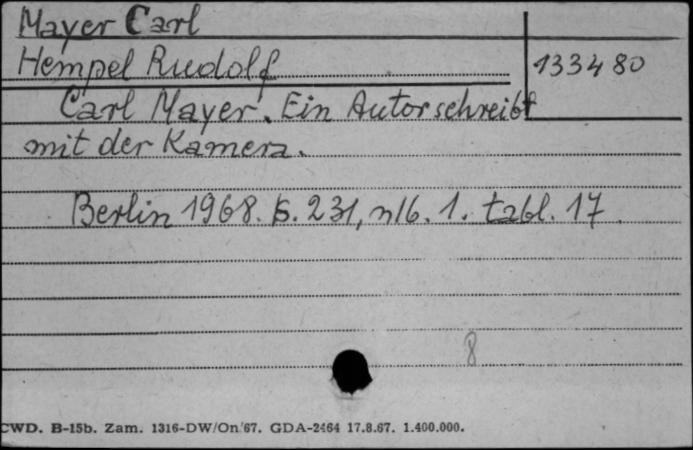 Mayer Carl
Hempel Rudolf
133480
Carl Mayer. Ein Autor schreibt
mit der Kamera.
Berlin 1968. s. 231, nlb. 1. tabl. 17
8
CWD. B-15b. Zam. 1316-DW/On/67. GDA-2464 17.8.67. 1.400.000.